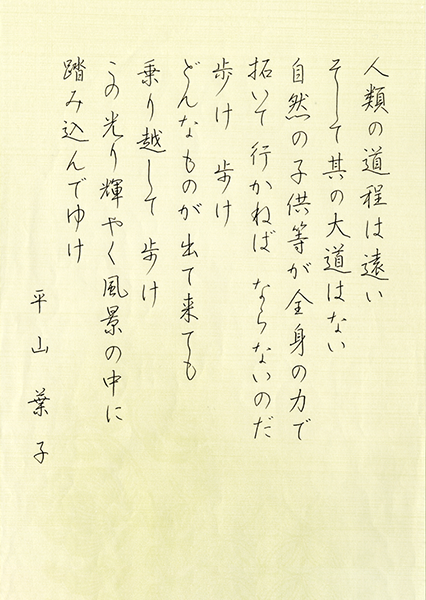 人類の道程は遠い
そして其の大道はない
自然の子供等が全身の力で
拓いて行かねば ならないのだ
歩け 歩け
どんなものが出て来ても
乗り越して 歩け
この光り輝やく風景の中に
踏み込んでゆけ
平山葉子